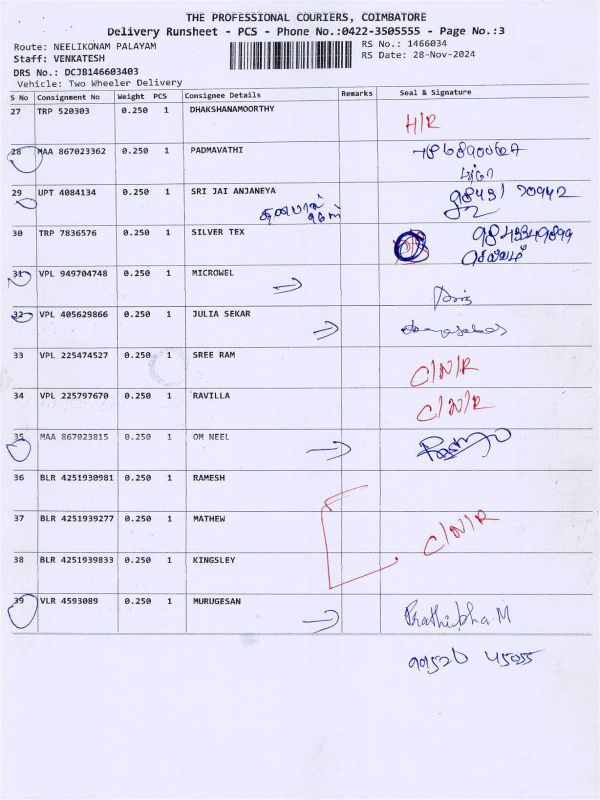 THE PROFESSIONAL COURIERS, COIMBATORE
Delivery Runsheet - PCS - Phone No.:0422-3505555 - Page No.:3
Route: NEELIKONAM PALAYAM
RS No.: 1466034
Staff: VENKATESH
RS Date: 28-Nov-2024
DRS No.: DCJB146603403
Vehicle: Two Wheeler Delivery
S No Consignment No Weight PCS Consignee Details Remarks Seal & Signature
27 TRP 520303 0.250 1 DHAKSHANAMOORTHY H/R
28 MAA 867023362 0.250 1 PADMAVATHI
29 UPT 4084134 0.250 1 SRI JAI ANJANEYA 98431 70942
30 TRP 7836576 0.250 1 SILVER TEX
31 VPL 949704748 0.250 1 MICROWEL
32 VPL 405629866 0.250 1 JULIA SEKAR
33 VPL 225474527 0.250 1 SREE RAM C/N/R
34 VPL 225797670 0.250 1 RAVILLA C/N/R
35 MAA 867023815 0.250 1 OM NEEL
36 BLR 4251930981 0.250 1 RAMESH
37 BLR 4251939277 0.250 1 MATHEW C/N/R
38 BLR 4251939833 0.250 1 KINGSLEY
39 VLR 4593089 0.250 1 MURUGESAN Prathibha.M
99526 45055